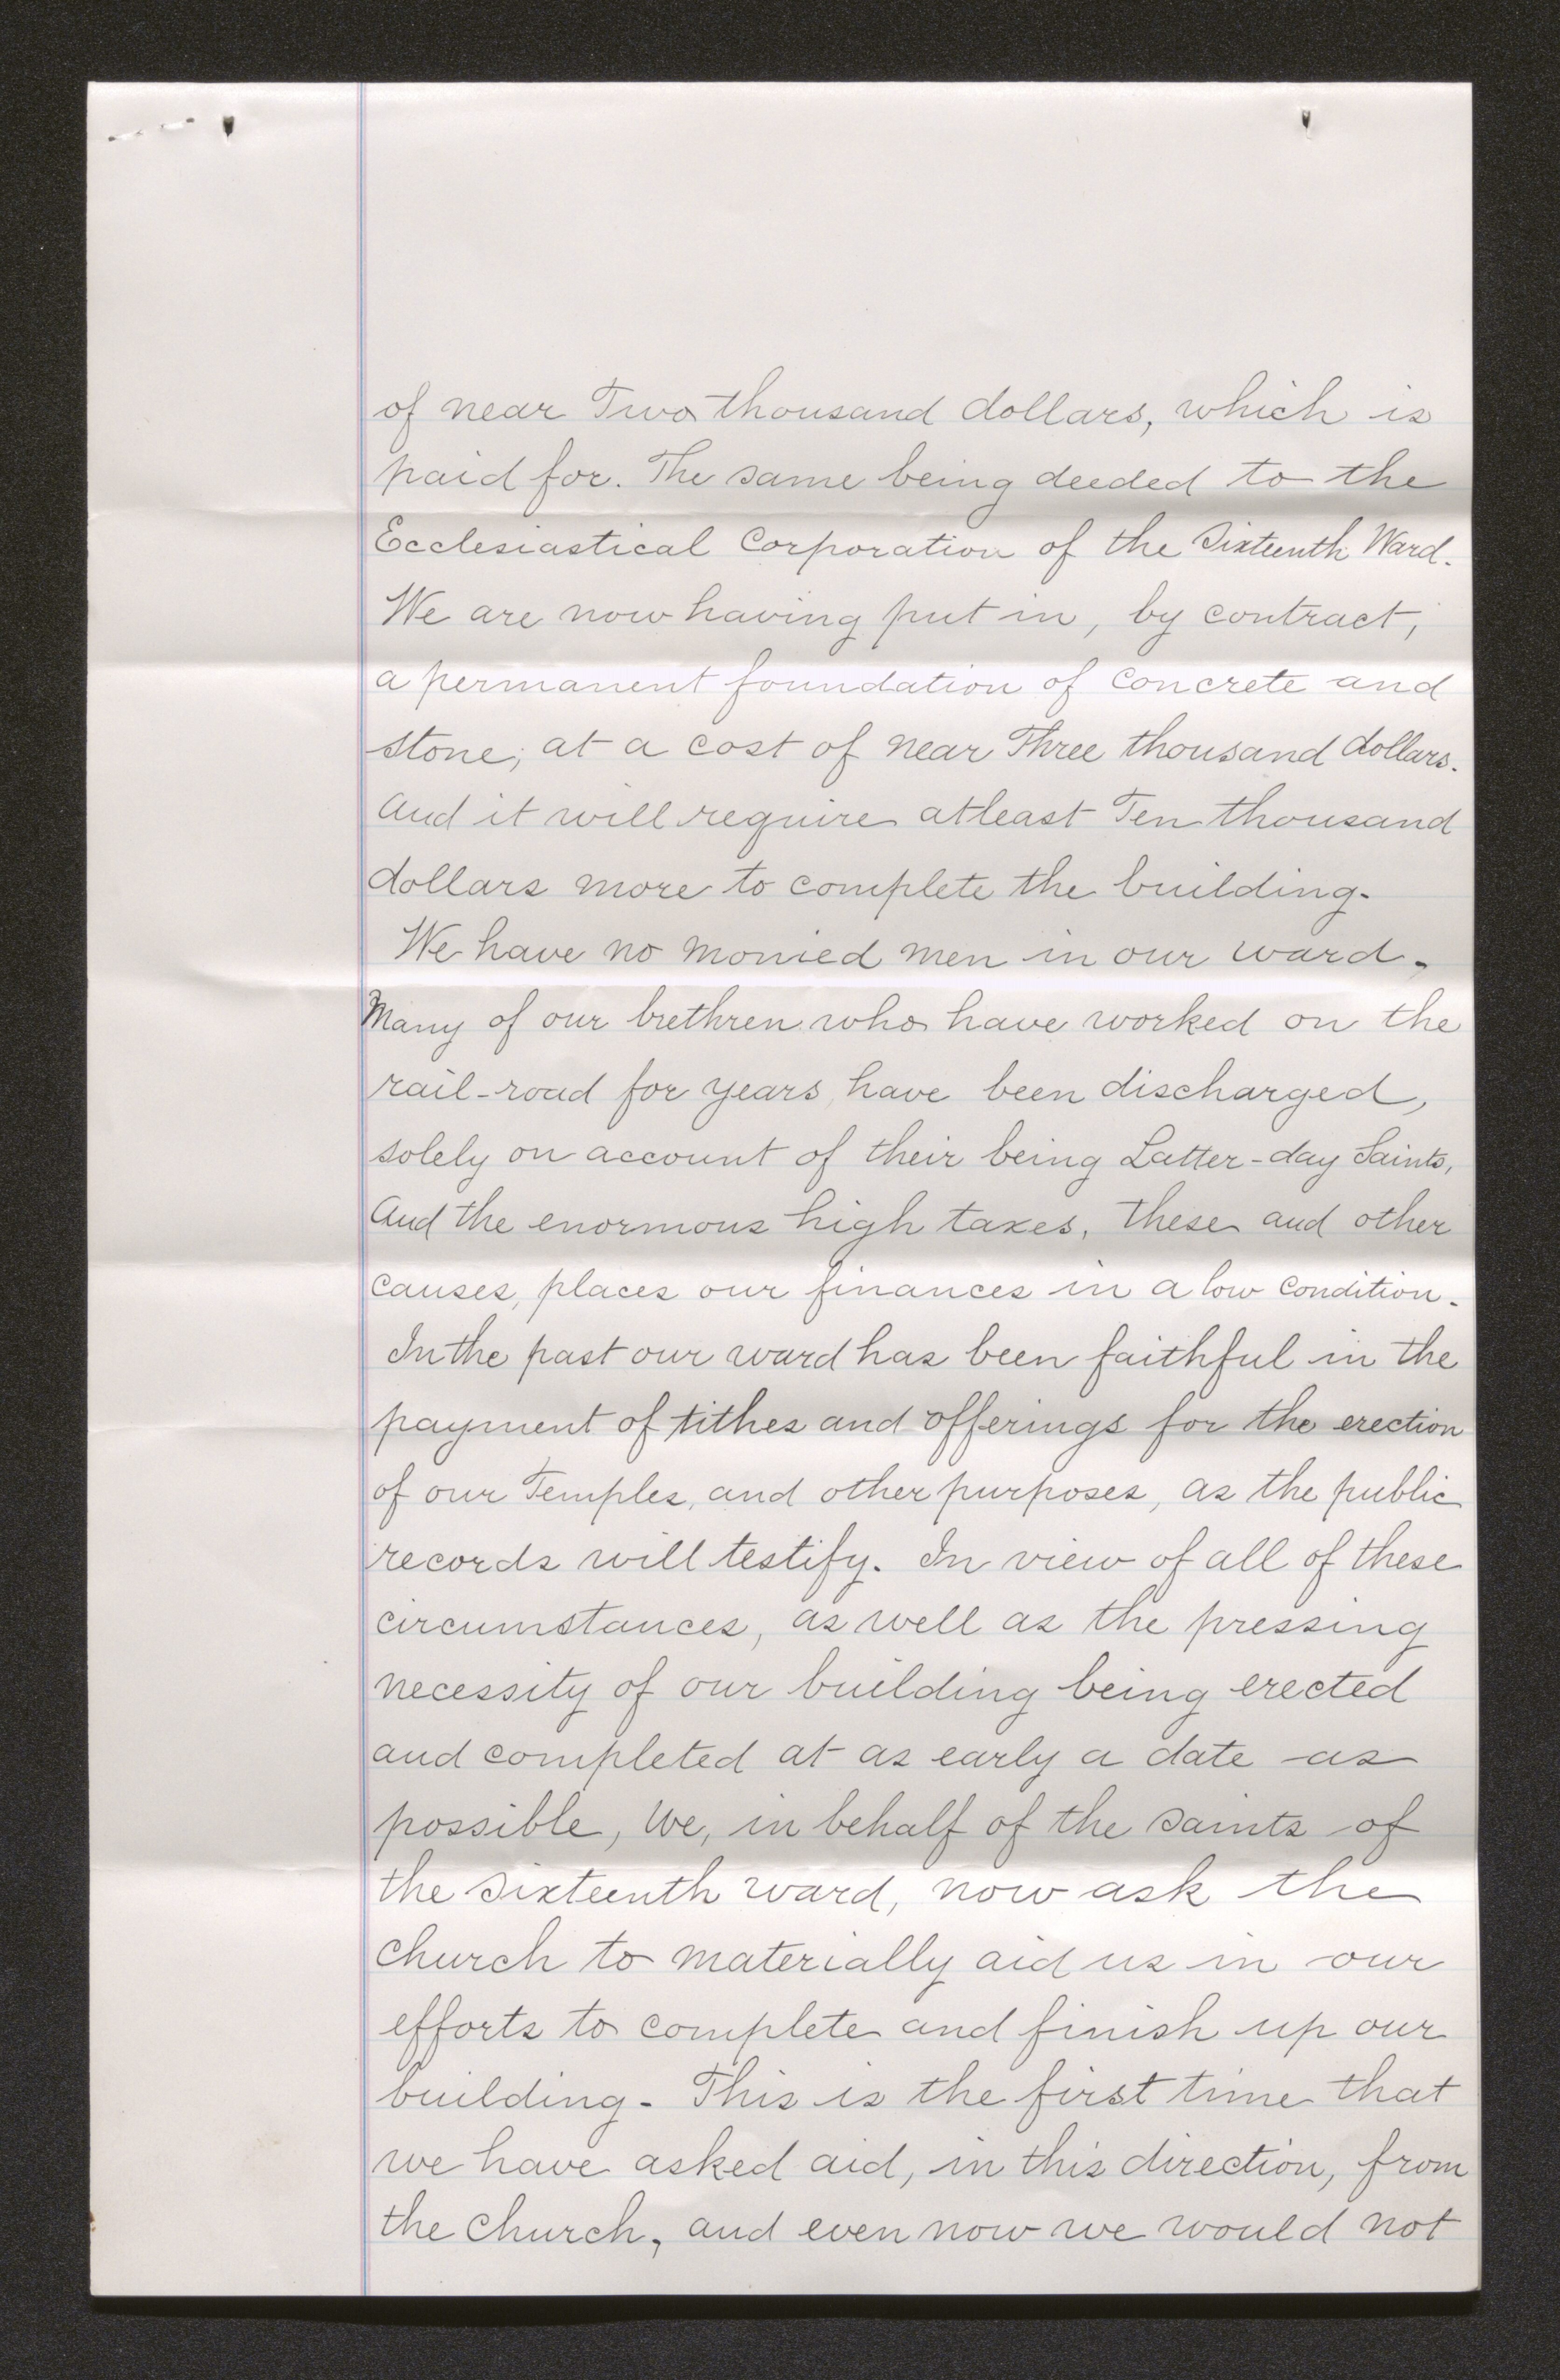 of near Two thousand dollars, which is
paid for. The same being deeded to the
Ecclesiastical Corporation of the Sixteenth Ward.
We are now having put in, by contract,
a permanent foundation of concrete and
stone, at a cost of near Three thousand dollars.
And it will require atleast Ten thousand
dollars more to complete the building.
We have no monied men in our ward.
Many of our brethren who have worked on the
rail-road for years, have been discharged,
solely on account of their being Latter-day Saints,
And the enormous high taxes, these and other
causes, places our finances in a low condition.
In the past our ward has been faithful in the
payment of tithes and offerings for the erection
of our Temples, and other purposes, as the public
records will testify. In view of all of these
circumstances, as well as the pressing
necessity of our building being erected
and completed at as early a date as
possible, We, in behalf of the saints of
the sixteenth ward, now ask the
church to materially aid us in our
efforts to complete and finish up our
building. This is the first time that
we have asked aid, in this direction, from
the church, and even now we would not